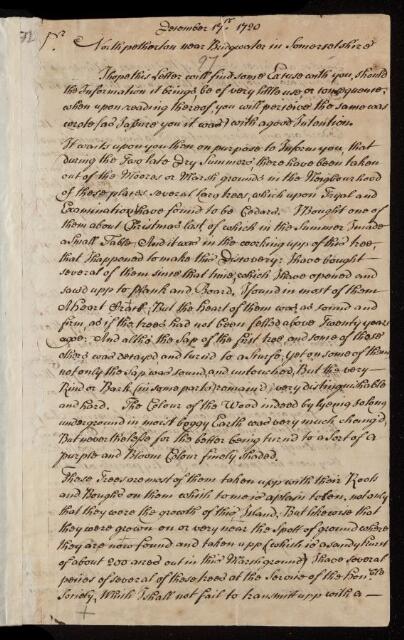 December 17th. 1720
72
Sr.
Northpetherton near Bridgwater in Somersetshire
27
I hope this Letter will find some Excuse with you, should
the Information it brings be of very little use, or consequence
when upon reading thereof, you will perceive the same was
wrote (as I assure you it was) with a good Intention.
It waits upon you then on purpose to Inform you, that
during the Two late Dry Summers there have been taken
out of the Moores or Marsh grounds in the Neighbourhood
of these places several Large trees, which upon Tryal and
Examination I have found to be Cedars. I Bought one of
them about Christmas last, of which in the Summer I made
a Small Table. And it was in the working upp of this tree,
that I happened to make this Discovery: I have bought
several of them since that time, which I have opened and
saw'd upp to plank and Board. I found in most of them
A heart Crack, But the heart of them was as sound and
firm, as if the trees had not been felled above Twenty years
agoe. And altho the Sap of the first tree and some of these
others was decayed and turn'd to a Surfe, Yet on some of them
not only the Sap was sound, and untouched, But the very
Rind or Bark, (in some parts remain'd) very distinguishable
and hard. The Colour of the Wood indeed by lyeing so long
underground in moist boggy Earth was very much Chang'd,
But nevertheless for the better being turn'd to a Sort of a
purple and Bloom Colour finely Shaded.
These Trees are most of them taken upp with their Roots
and Boughs on them which to me is a plain token, not only
that they were the growth of this Island, But likewise that
they were grown on or very near the Spott of ground where
they are now found and taken upp (which is a sandy burst
of about 200 acres out in this Marsh ground) I have several
peices of several of these trees at the Service of the Honble
Society, Which I shall not fail to transmitt upp with a —